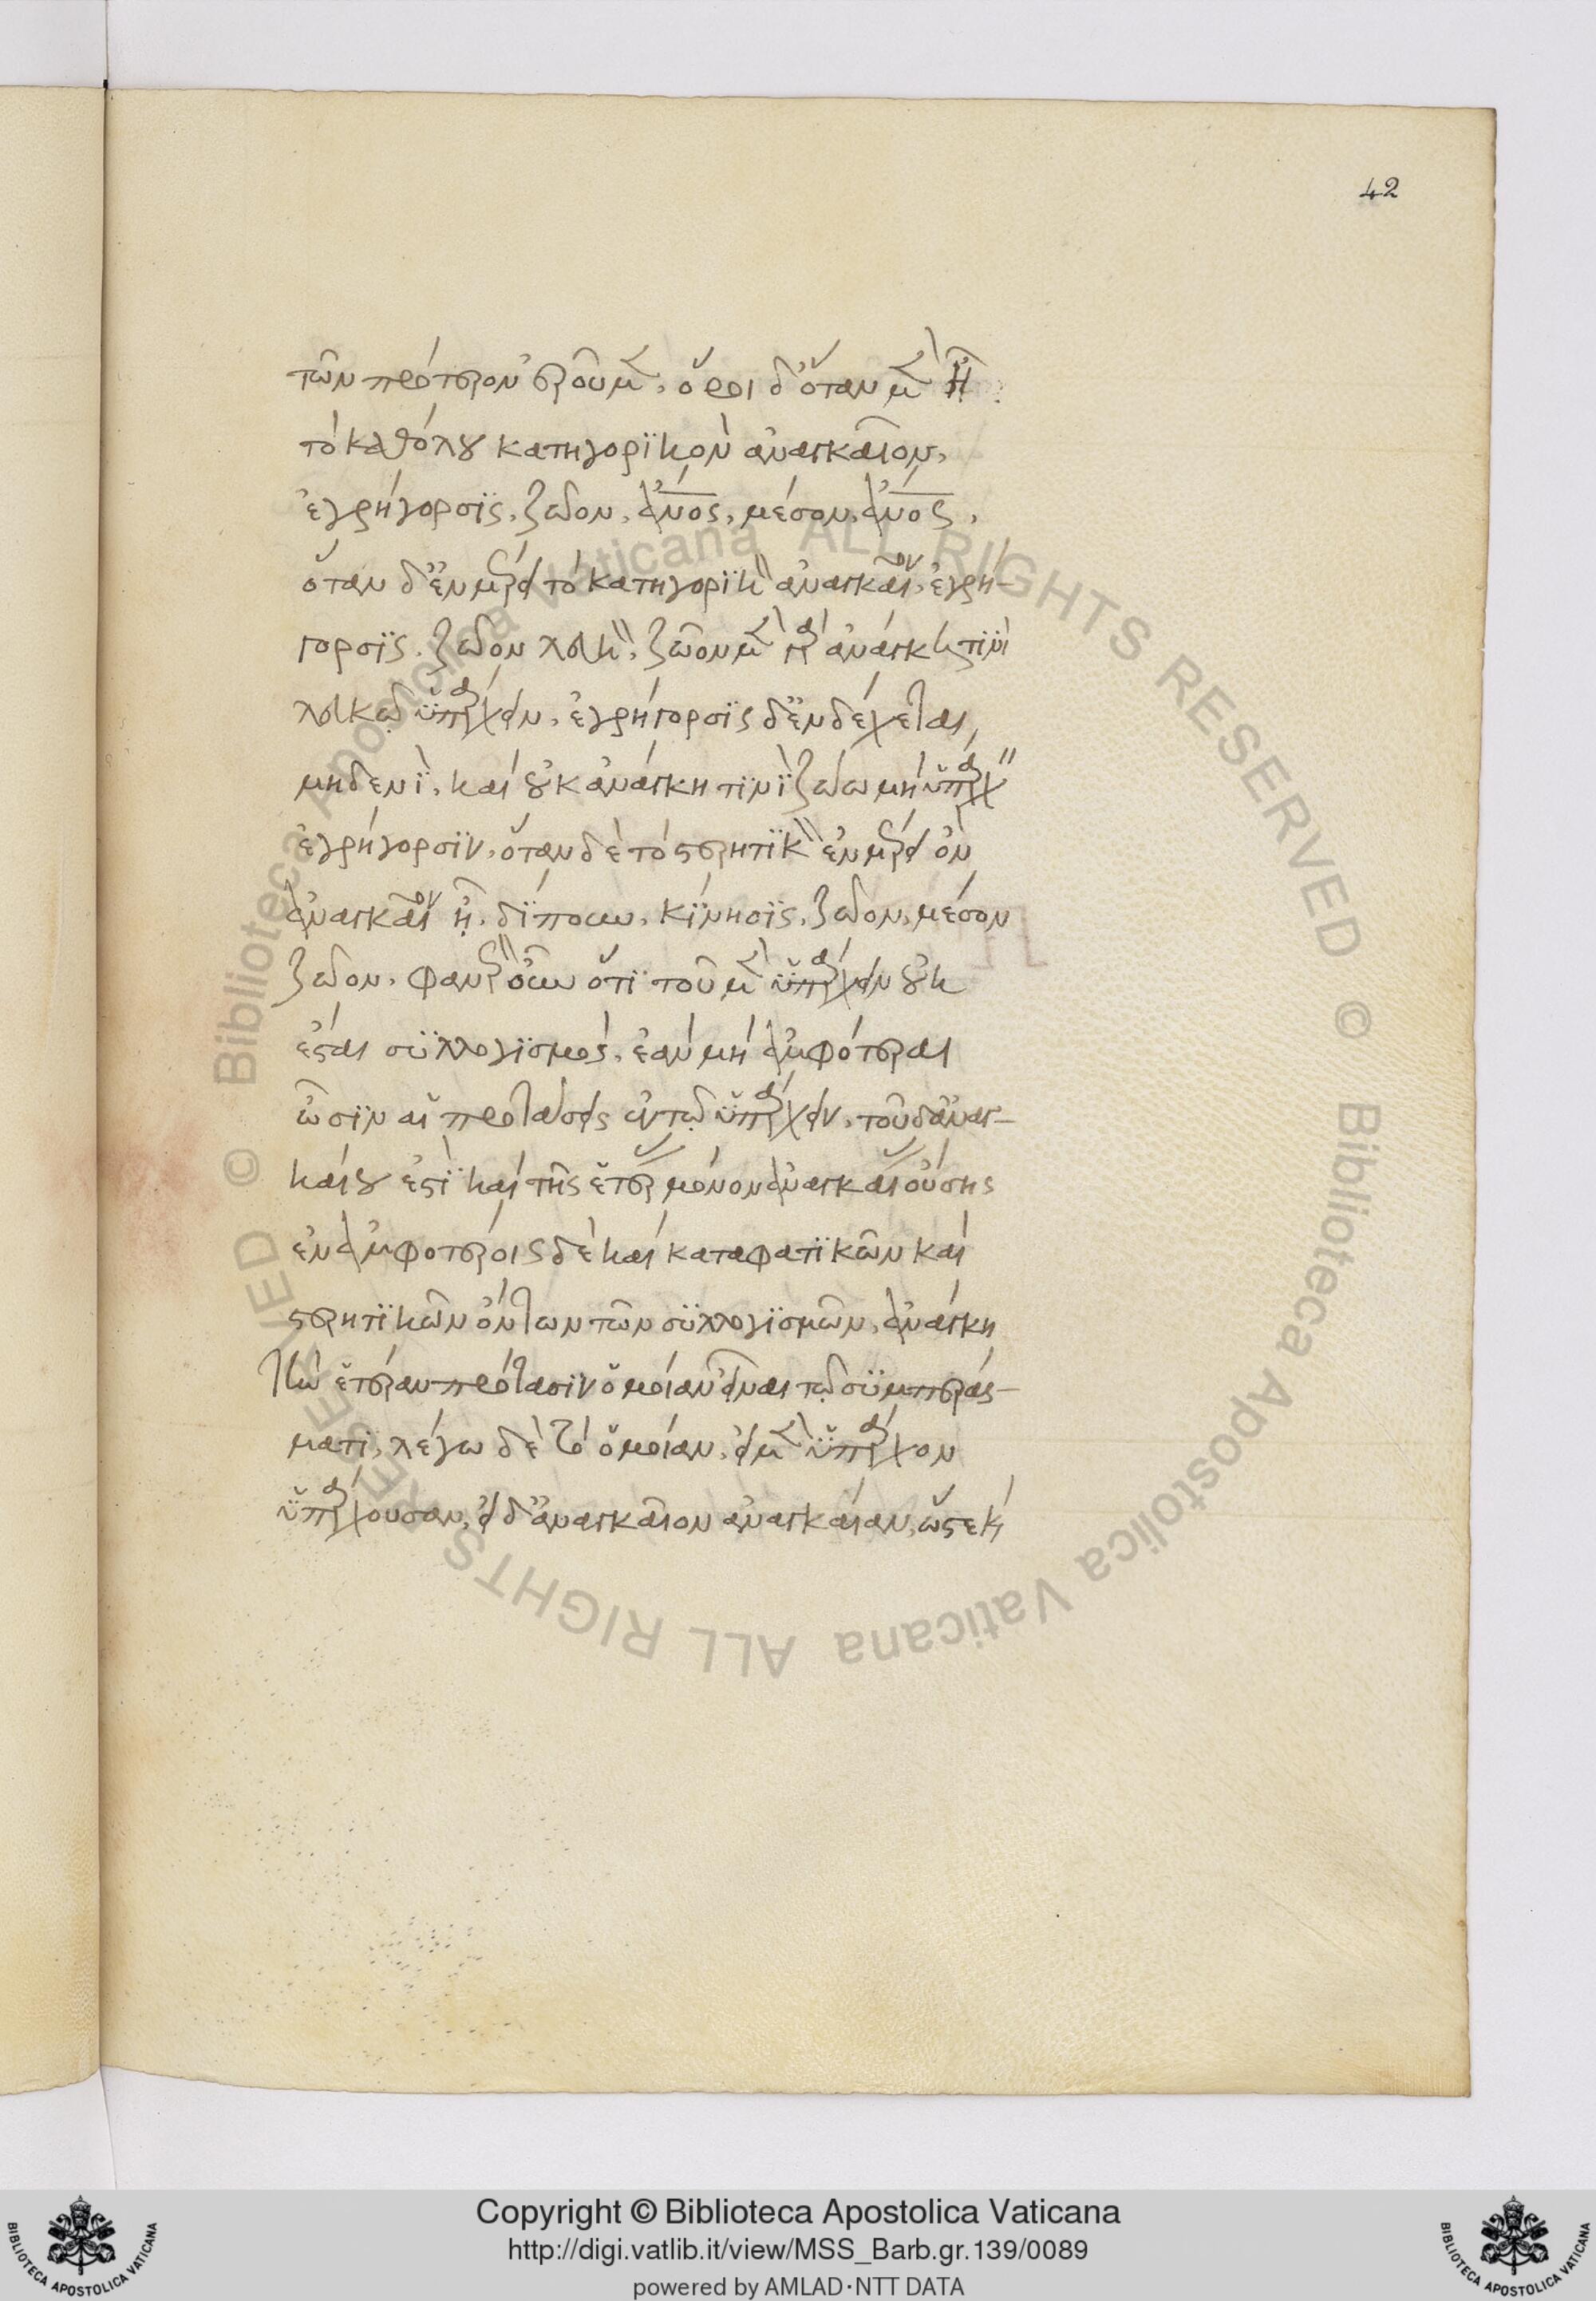 42
τῶν πρότερον ἐροῦμεν. ὅροι δ' ὅταν μὲν ᾖ
τὸ καθόλου κατηγορϊκὸν ἀναγκαῖον,
ἐγρήγορσϊς. ζῷον. ἄνος. μέσον. ἄνος.
ὅταν δ' ἐν μέρει τὸ κατηγορϊκὸν ἀναγκαῖον, ἐγρή-
γορσϊς. ζῷον λευκόν. ζῷον μὲν γὰρ ἀνάγκη τϊνὶ
λευκῷ ὑπάρχειν. ἐγρήγορσϊς δ' ἐνδέχεται
μηδενὶ. καὶ οὐκ ἀνάγκη τϊνὶ ζώω μὴ ὑπάρχειν
ἐγρήγορσϊν. ὅταν δὲ τὸ στερητϊκὸν ἐν μέρει ὂν
ἀναγκαῖον ᾖ. δίπουν. κίνησϊς. ζῷον. μέσον
ζῷον. φανερὸν οὖν ὅτϊ τοῦ μὲν ὑπάρχειν οὐκ
ἔσται συλλογϊσμὸς. ἐὰν μὴ ἀμφότεραι
ὦσϊν αἱ προτάσεις ἐν τῷ ὑπάρχειν. τοῦ δ' ἀναγ-
καίου ἐστὶ καὶ τῆς ἑτέρας μόνον ἀναγκαίας οὔσης
ἐν ἀμφοτέροις δὲ καὶ καταφατϊκῶν καὶ
στερητϊκῶν ὄντων τῶν συλλογϊσμῶν. ἀνάγκη
τὴν ἑτέραν πρότασϊν ὁμοίαν εἶναι τῷ συμπεράσ-
ματϊ. λέγω δὲ τὸ ὁμοίαν. εἰ μὲν ὑπάρχον
ὑπάρχουσαν. εἰ δ' ἀναγκαῖον ἀναγκαίαν. ὥστε καὶ
Copyright © Biblioteca Apostolica Vaticana
http://digi.vatlib.it/view/MSS_Barb.gr.139/0089
powered by AMLAD·NTT DATA
BIBLIOTECA APOSTOLICA VATICANA
BIBLIOTECA APOSTOLICA VATICANA
© Biblioteca Apostolica Vaticana ALL RIGHTS RESERVED © Biblioteca Apostolica Vaticana ALL RIGHTS RESERVED